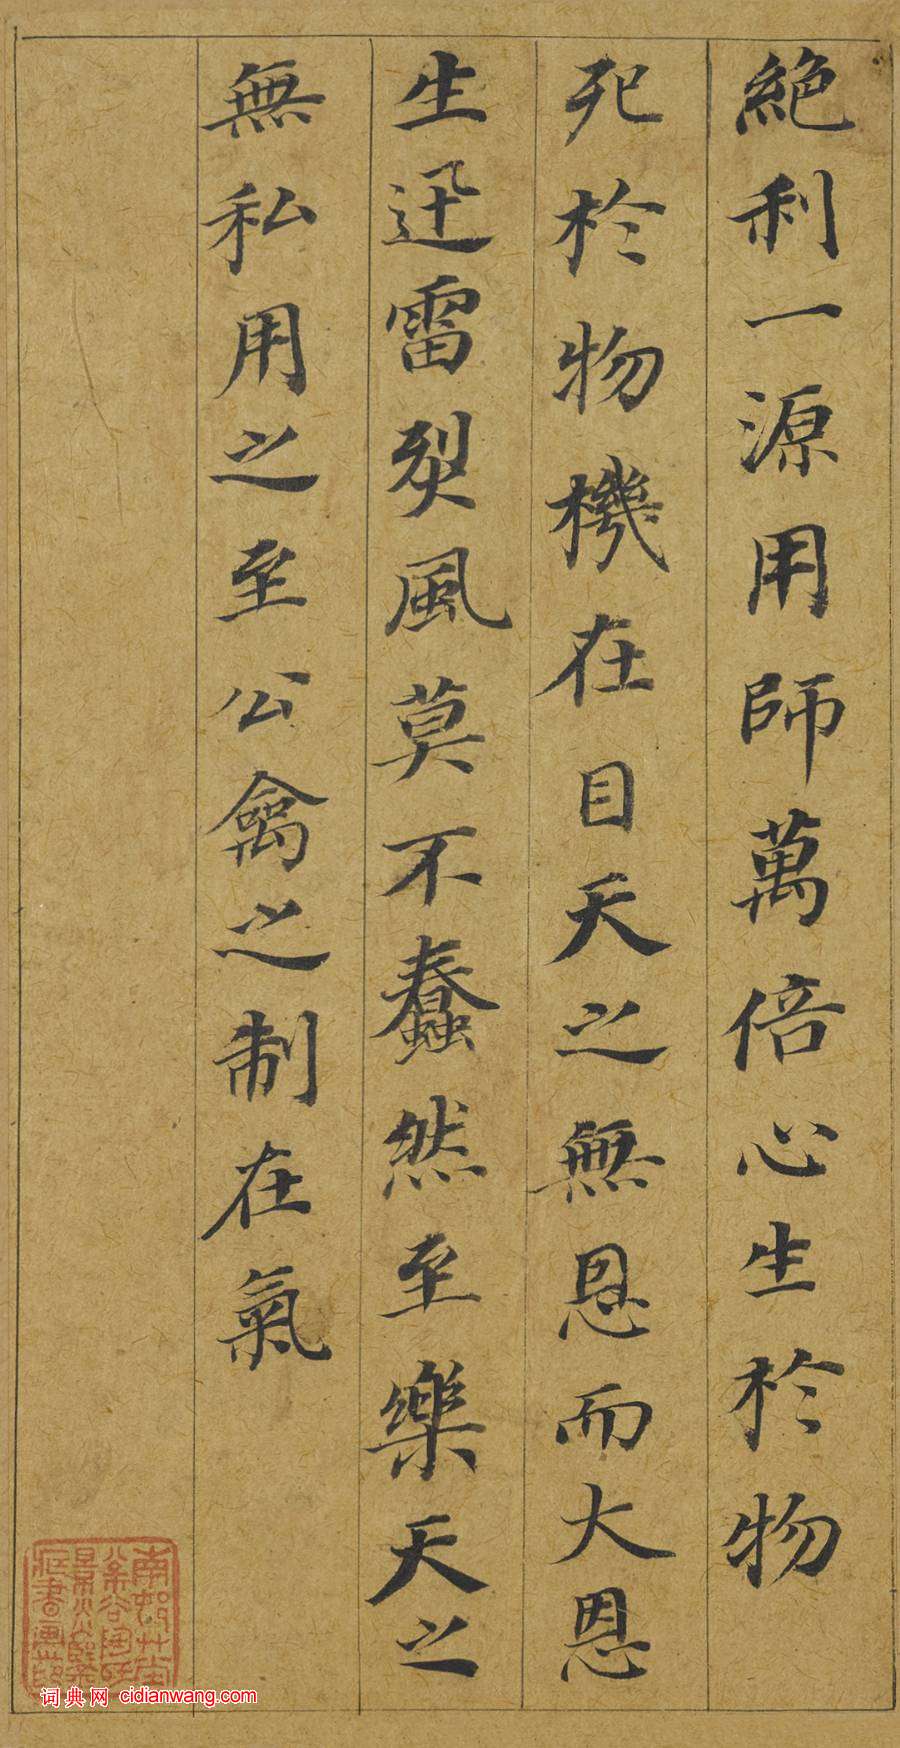 絶利一源用師萬倍心生於物
死於物機在目天之無恩而大恩
生迅雷烈風莫不蠢然至樂天之
無私用之至公禽之制在氣
词典网 cidianwang.com